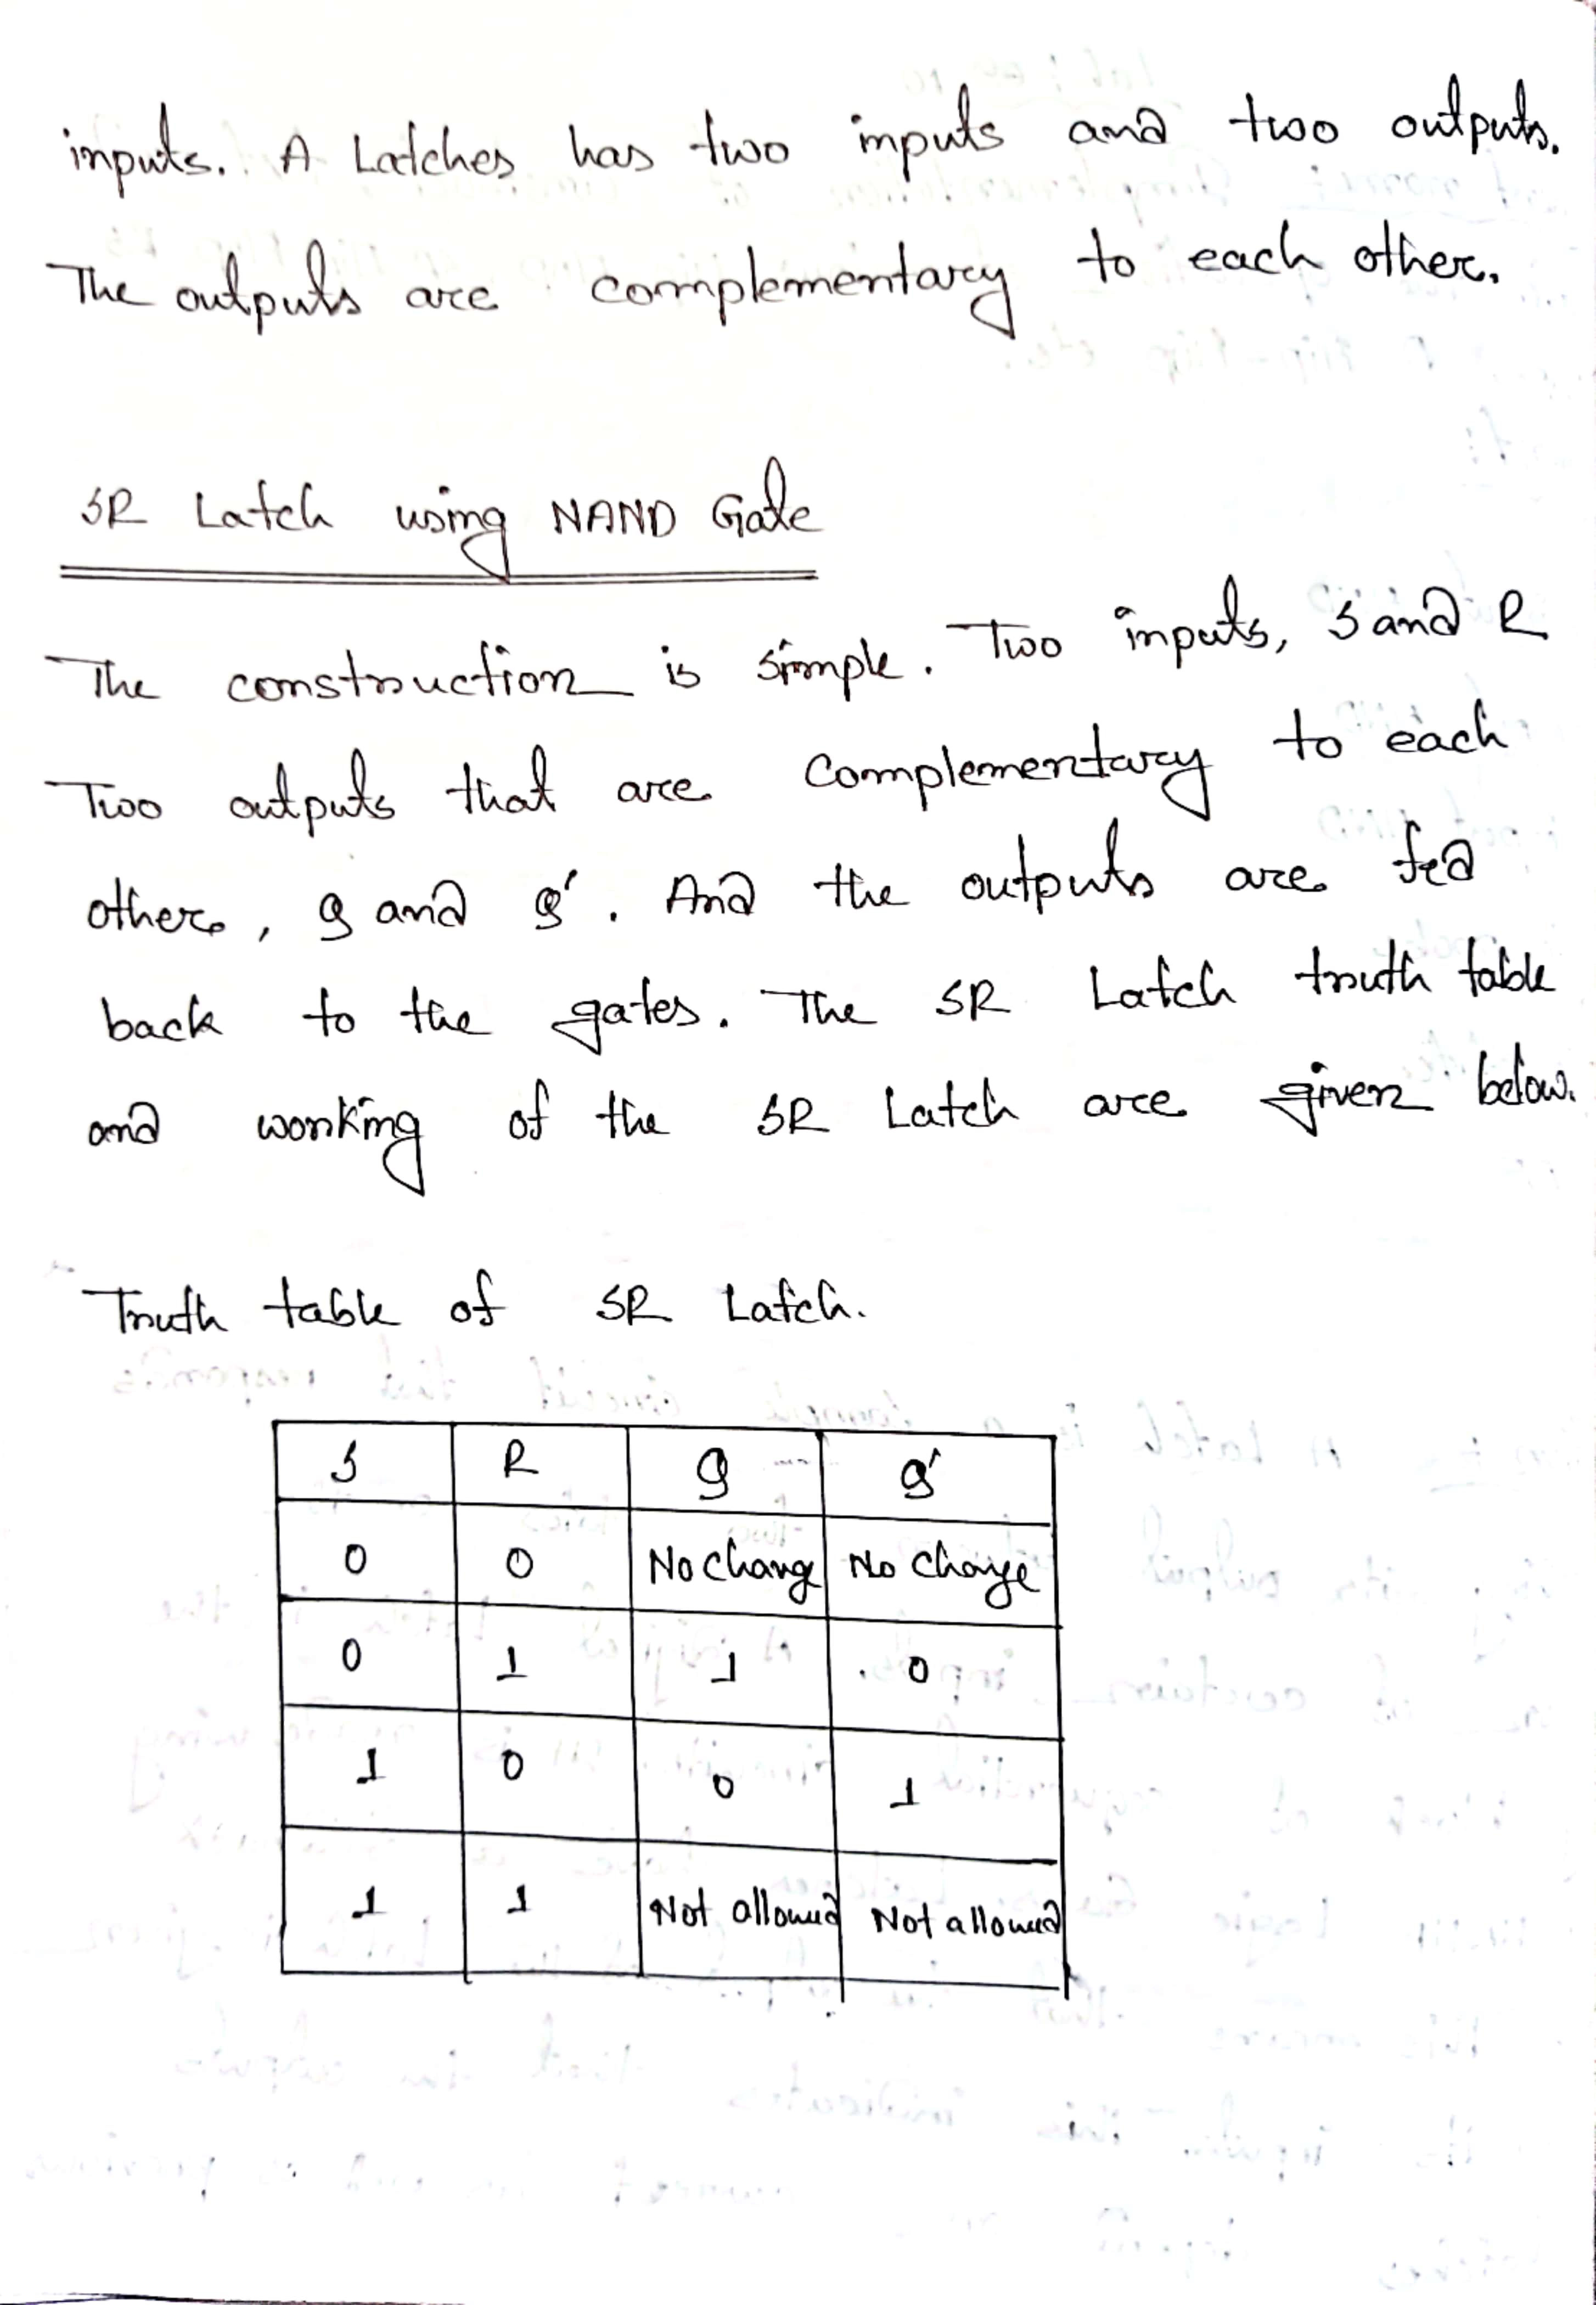 inputs. A Latches has two inputs and two outputs.
The outputs are complementary to each other.
SR Latch using NAND Gate
The construction is simple. Two inputs, S and R
Two outputs that are complementary to each
others, Q and Q'. And the outputs are fed
back to the gates. The SR Latch truth table
and working of the SR Latch are given below.
Truth table of SR Latch.
S R Q Q'
0 0 No chang No change
0 1 1 0
1 0 0 1
1 1 Not allowed Not allowed